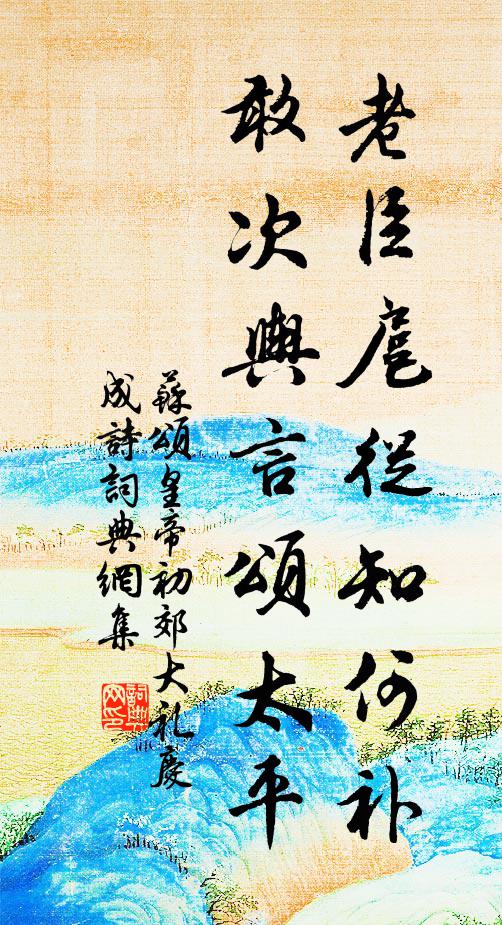 老臣扈從知何补
敢次輿言頌太平
蘇頌皇帝初郊大礼慶
成詩詞典網集
詞典
网印